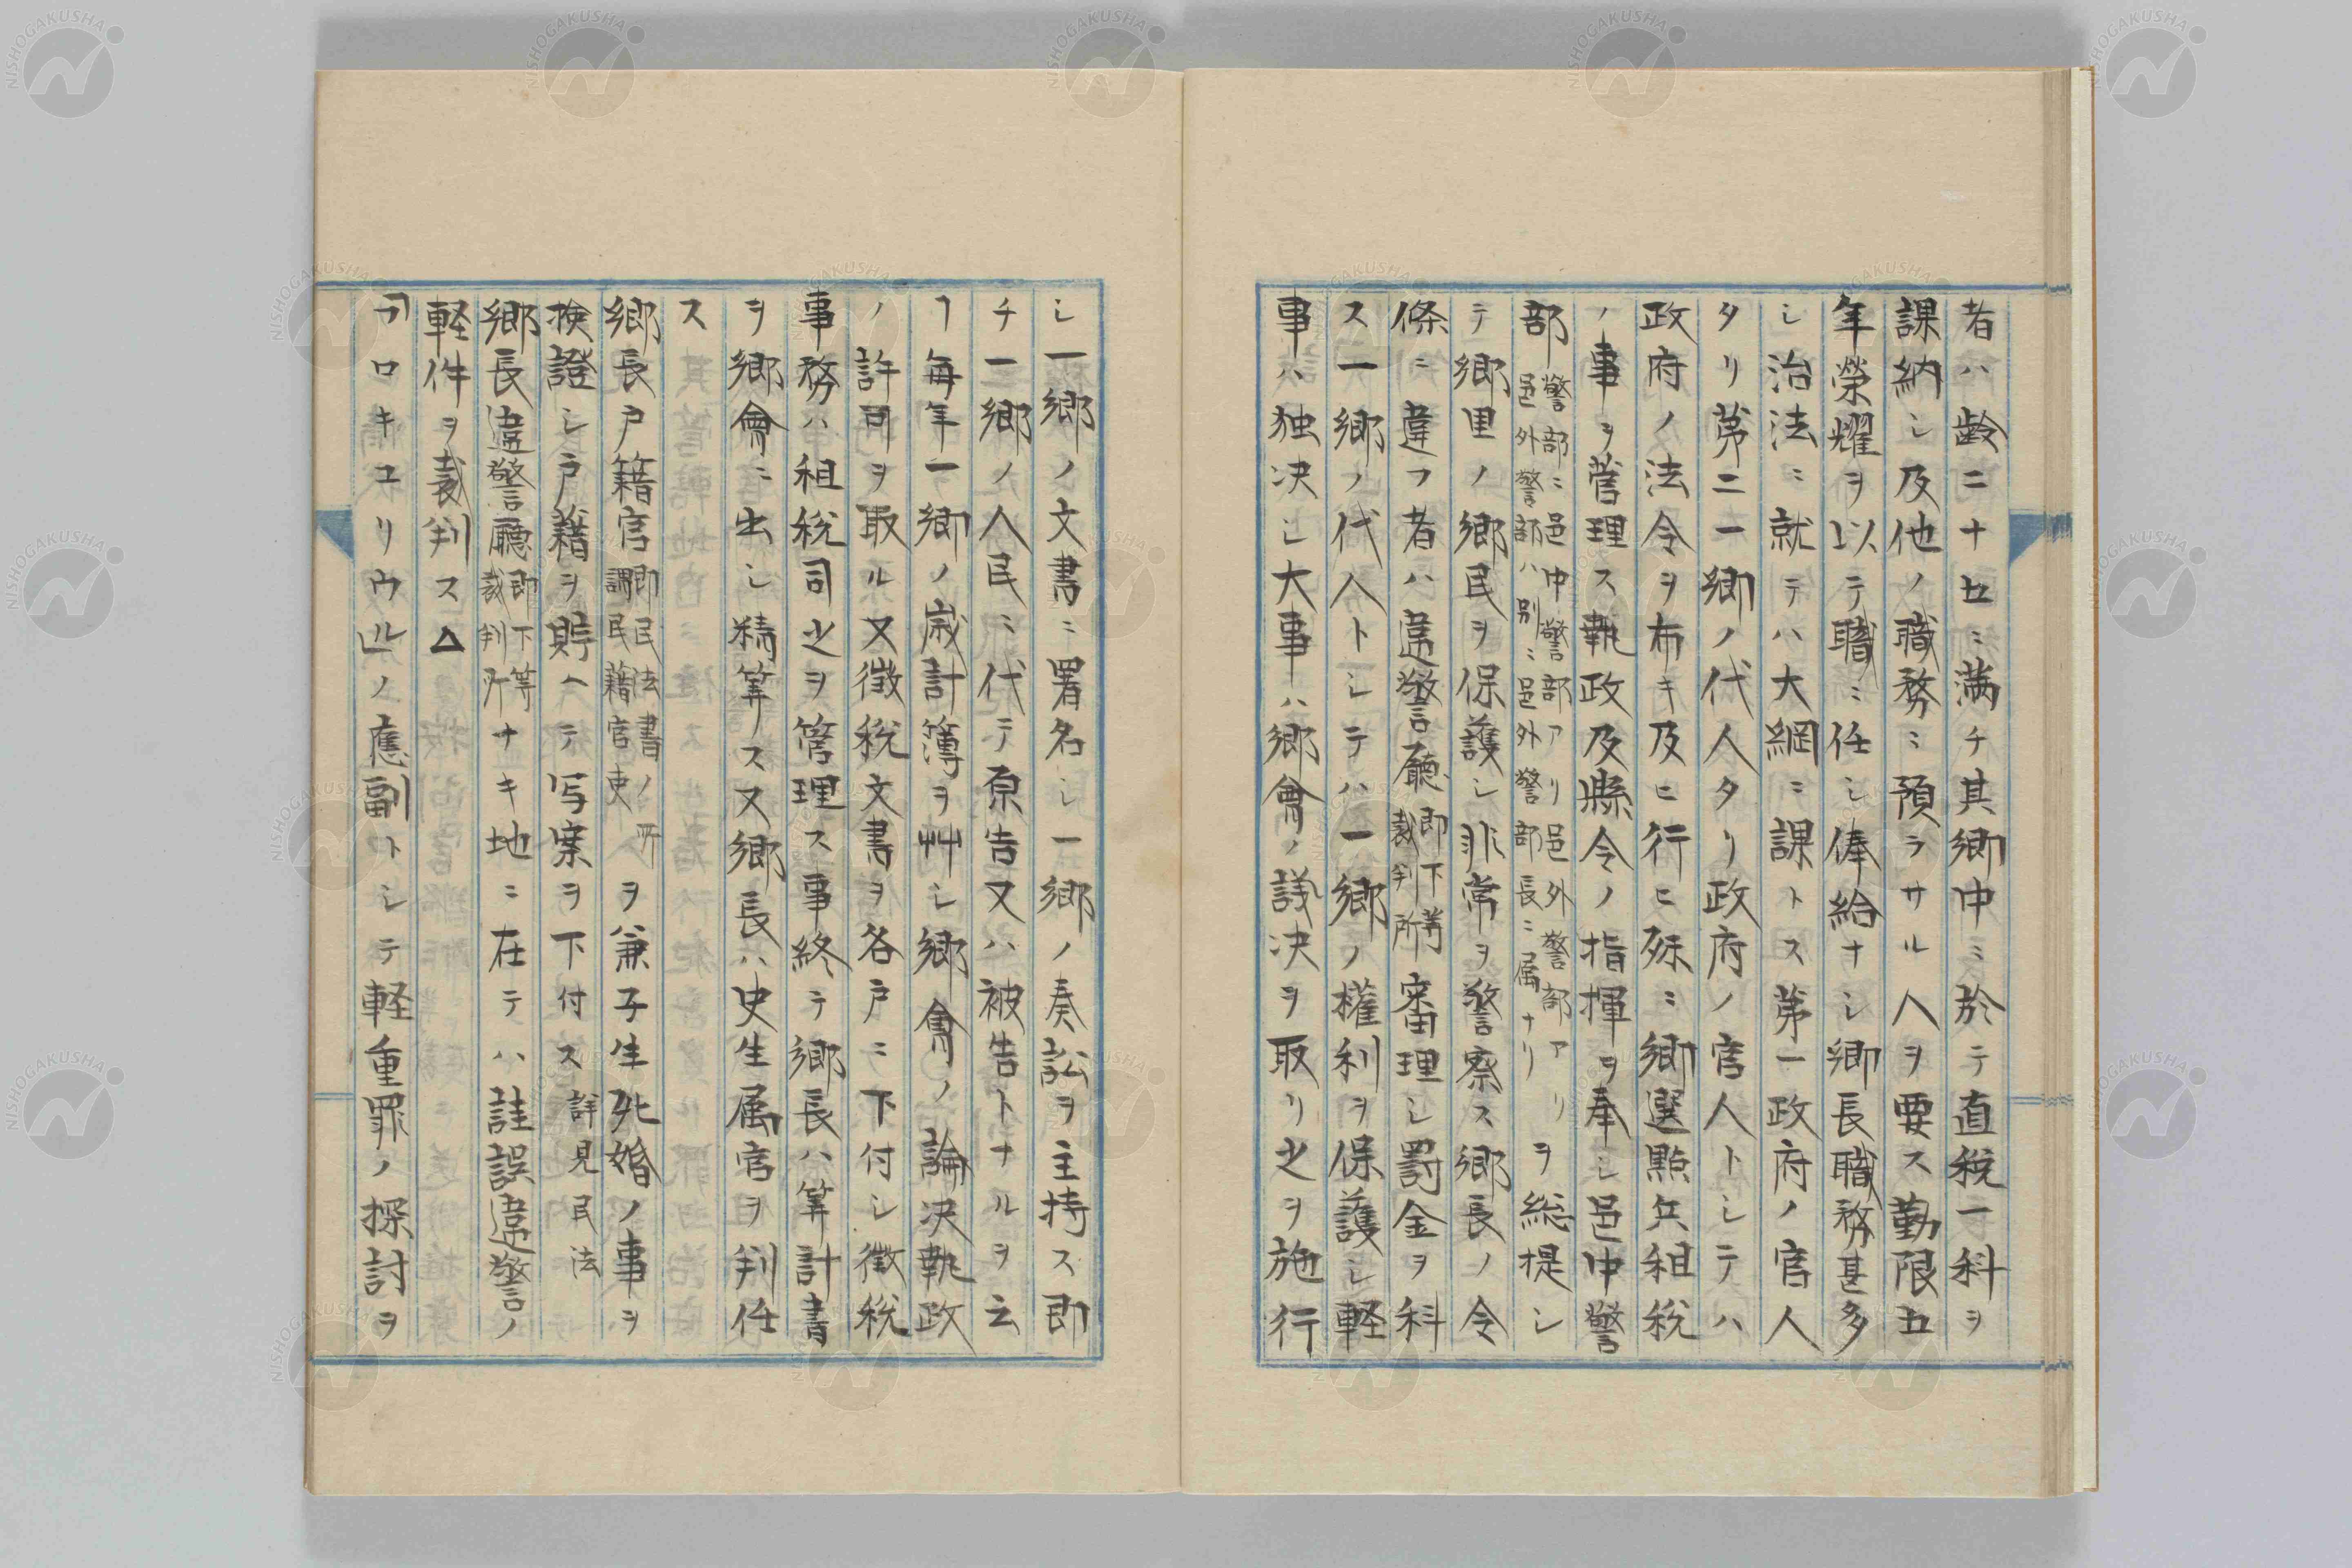 者ハ齢二十五ニ満チ其郷中ニ於テ直税一科ヲ
課納シ及他ノ職務ニ預ラサル人ヲ要ス勤限五
年榮耀ヲ以テ職ニ任シ俸給ナシ郷長職務甚多
シ治法ニ就テハ大綱ニ課トス第一政府ノ官人
タリ第二一郷ノ代人タリ政府ノ官人トシテハ
政府ノ法令ヲ布キ及ヒ行ヒ殊ニ郷選點兵租税
ノ事ヲ菅理ス執政及縣令ノ指揮ヲ奉シ邑中警
部警部ニ邑中警部アリ邑外警部アリ邑外警部ハ別ニ邑外警部長ニ属ナリヲ総提シ
テ郷里ノ郷民ヲ保護シ非常ヲ警察ス郷長ノ令
條ニ違フ者ハ違警廳即下等裁判所審理シ罰金ヲ科
ス一郷ノ代人トシテハ一郷ノ權利ヲ保護シ軽
事ハ独决シ大事ハ郷會ノ議决ヲ取リ之ヲ施行
シ一郷ノ文書ニ署名シ一郷ノ奏訟ヲ主持ス即
チ一郷ノ人民ニ代テ原告又ハ被告トナルヲ云
フ毎年一郷ノ歳計簿ヲ艸シ郷會ノ論决執政
ノ許可ヲ取ル又徴税文書ヲ各戸ニ下付シ徴税
事務ハ租税司之ヲ管理ス事終テ郷長ハ筭計書
ヲ郷會ニ出シ精筭ス又郷長ハ史生属官ヲ判任
ス
郷長戸籍官即民法書ノ所謂民籍官吏ヲ兼子生死婚ノ事ヲ
検證シ戸籍ヲ貯ヘテ写案ヲ下付ス詳見民法
郷長違警廳即下等裁判所ナキ地ニ在テハ詿誤違警ノ
軽件ヲ裁判ス△
「プロキユリウル」ノ應副トシテ軽重罪ノ探討ヲ
NISHOGAKUSHA